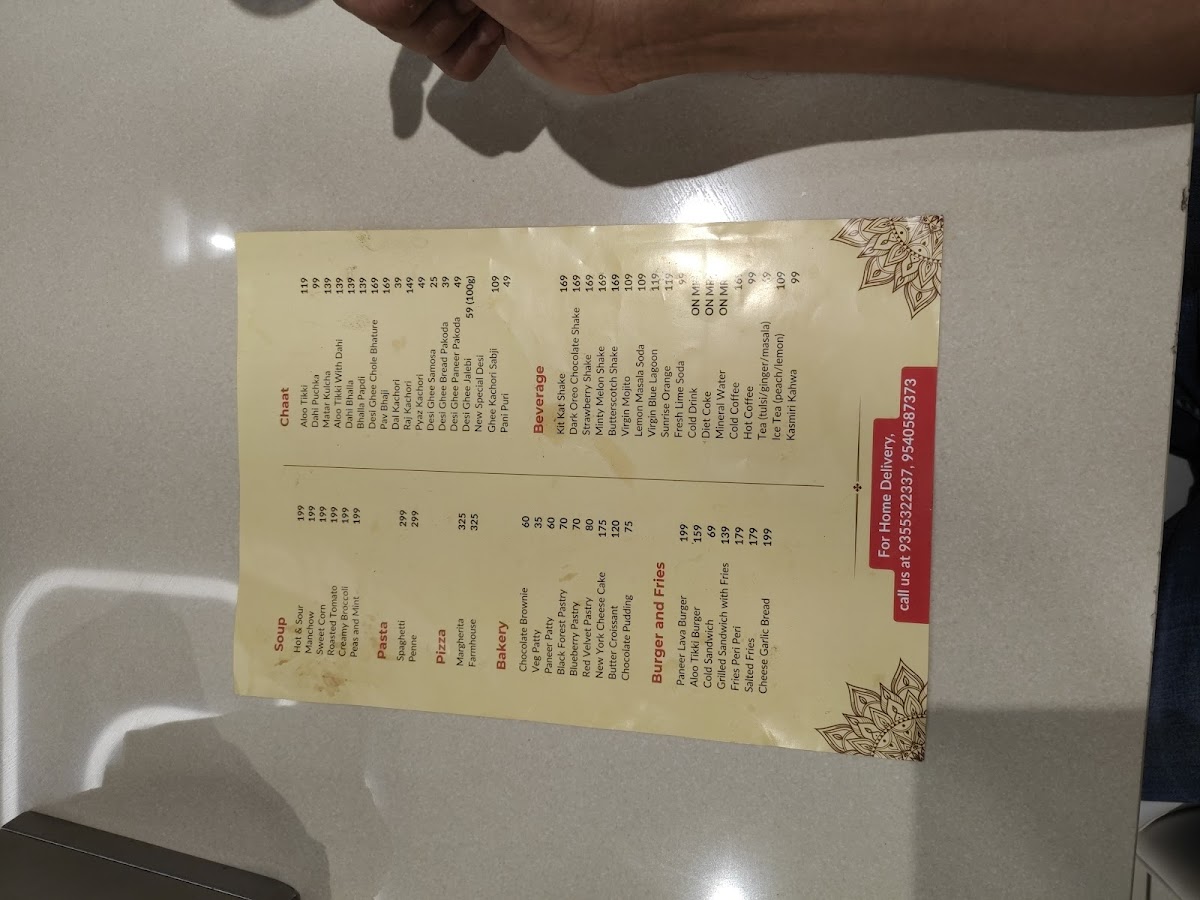 Soup
Hot & Sour 199
Manchow 199
Sweet Corn 199
Roasted Tomato 199
Creamy Broccoli 199
Peas and Mint 199
Pasta
Spaghetti 299
Penne 299
Pizza
Margherita 325
Farmhouse 325
Bakery
Chocolate Brownie 60
Veg Patty 35
Paneer Patty 60
Black Forest Pastry 70
Blueberry Pastry 70
Red Velvet Pastry 80
New York Cheese Cake 175
Butter Croissant 120
Chocolate Pudding 75
Burger and Fries
Paneer Lava Burger 199
Aloo Tikki Burger 159
Cold Sandwich 69
Grilled Sandwich with Fries 139
Fries Peri Peri 179
Salted Fries 179
Cheese Garlic Bread 199
Chaat
Aloo Tikki 119
Dahi Puchka 99
Matar Kulcha 139
Aloo Tikki With Dahi 139
Dahi Bhalla 139
Bhalla Papdi 139
Desi Ghee Chole Bhature 169
Pav Bhaji 169
Dal Kachori 39
Raj Kachori 149
Pyaz Kachori 49
Desi Ghee Samosa 25
Desi Ghee Bread Pakoda 39
Desi Ghee Paneer Pakoda 49
Desi Ghee Jalebi 59 (100g)
New Special Desi
Ghee Kachori Sabji 109
Pani Puri 49
Beverage
Kit Kat Shake 169
Dark Oreo Chocolate Shake 169
Strawberry Shake 169
Minty Melon Shake 169
Butterscotch Shake 169
Virgin Mojito 109
Lemon Masala Soda 109
Virgin Blue Lagoon 119
Sunrise Orange 119
Fresh Lime Soda
Cold Drink ON
Diet Coke ON
Mineral Water ON
Cold Coffee
Hot Coffee 99
Tea (tulsi/ginger/masala)
Ice Tea (peach/lemon) 109
Kasmiri Kahwa 99
For Home Delivery,
call us at 9355322337, 9540587373